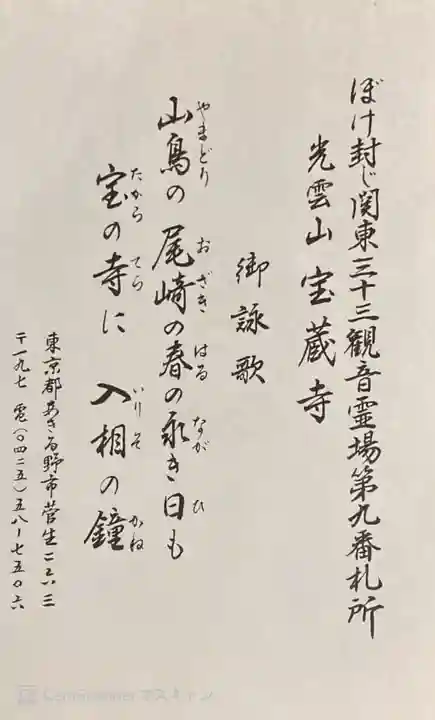 ぼけ封じ関東三十三観音霊場第九番札所
光雲山 宝蔵寺
御詠歌
山鳥の 尾崎の春の永き日も
やまどり おざき はる なが ひ
宝の寺に 入相の鐘
たから てら いりそ かね
東京都あきる野市菅生二六三
〒一九七 電(〇四二五)五八ー七五〇六
CamScanner でスキャン